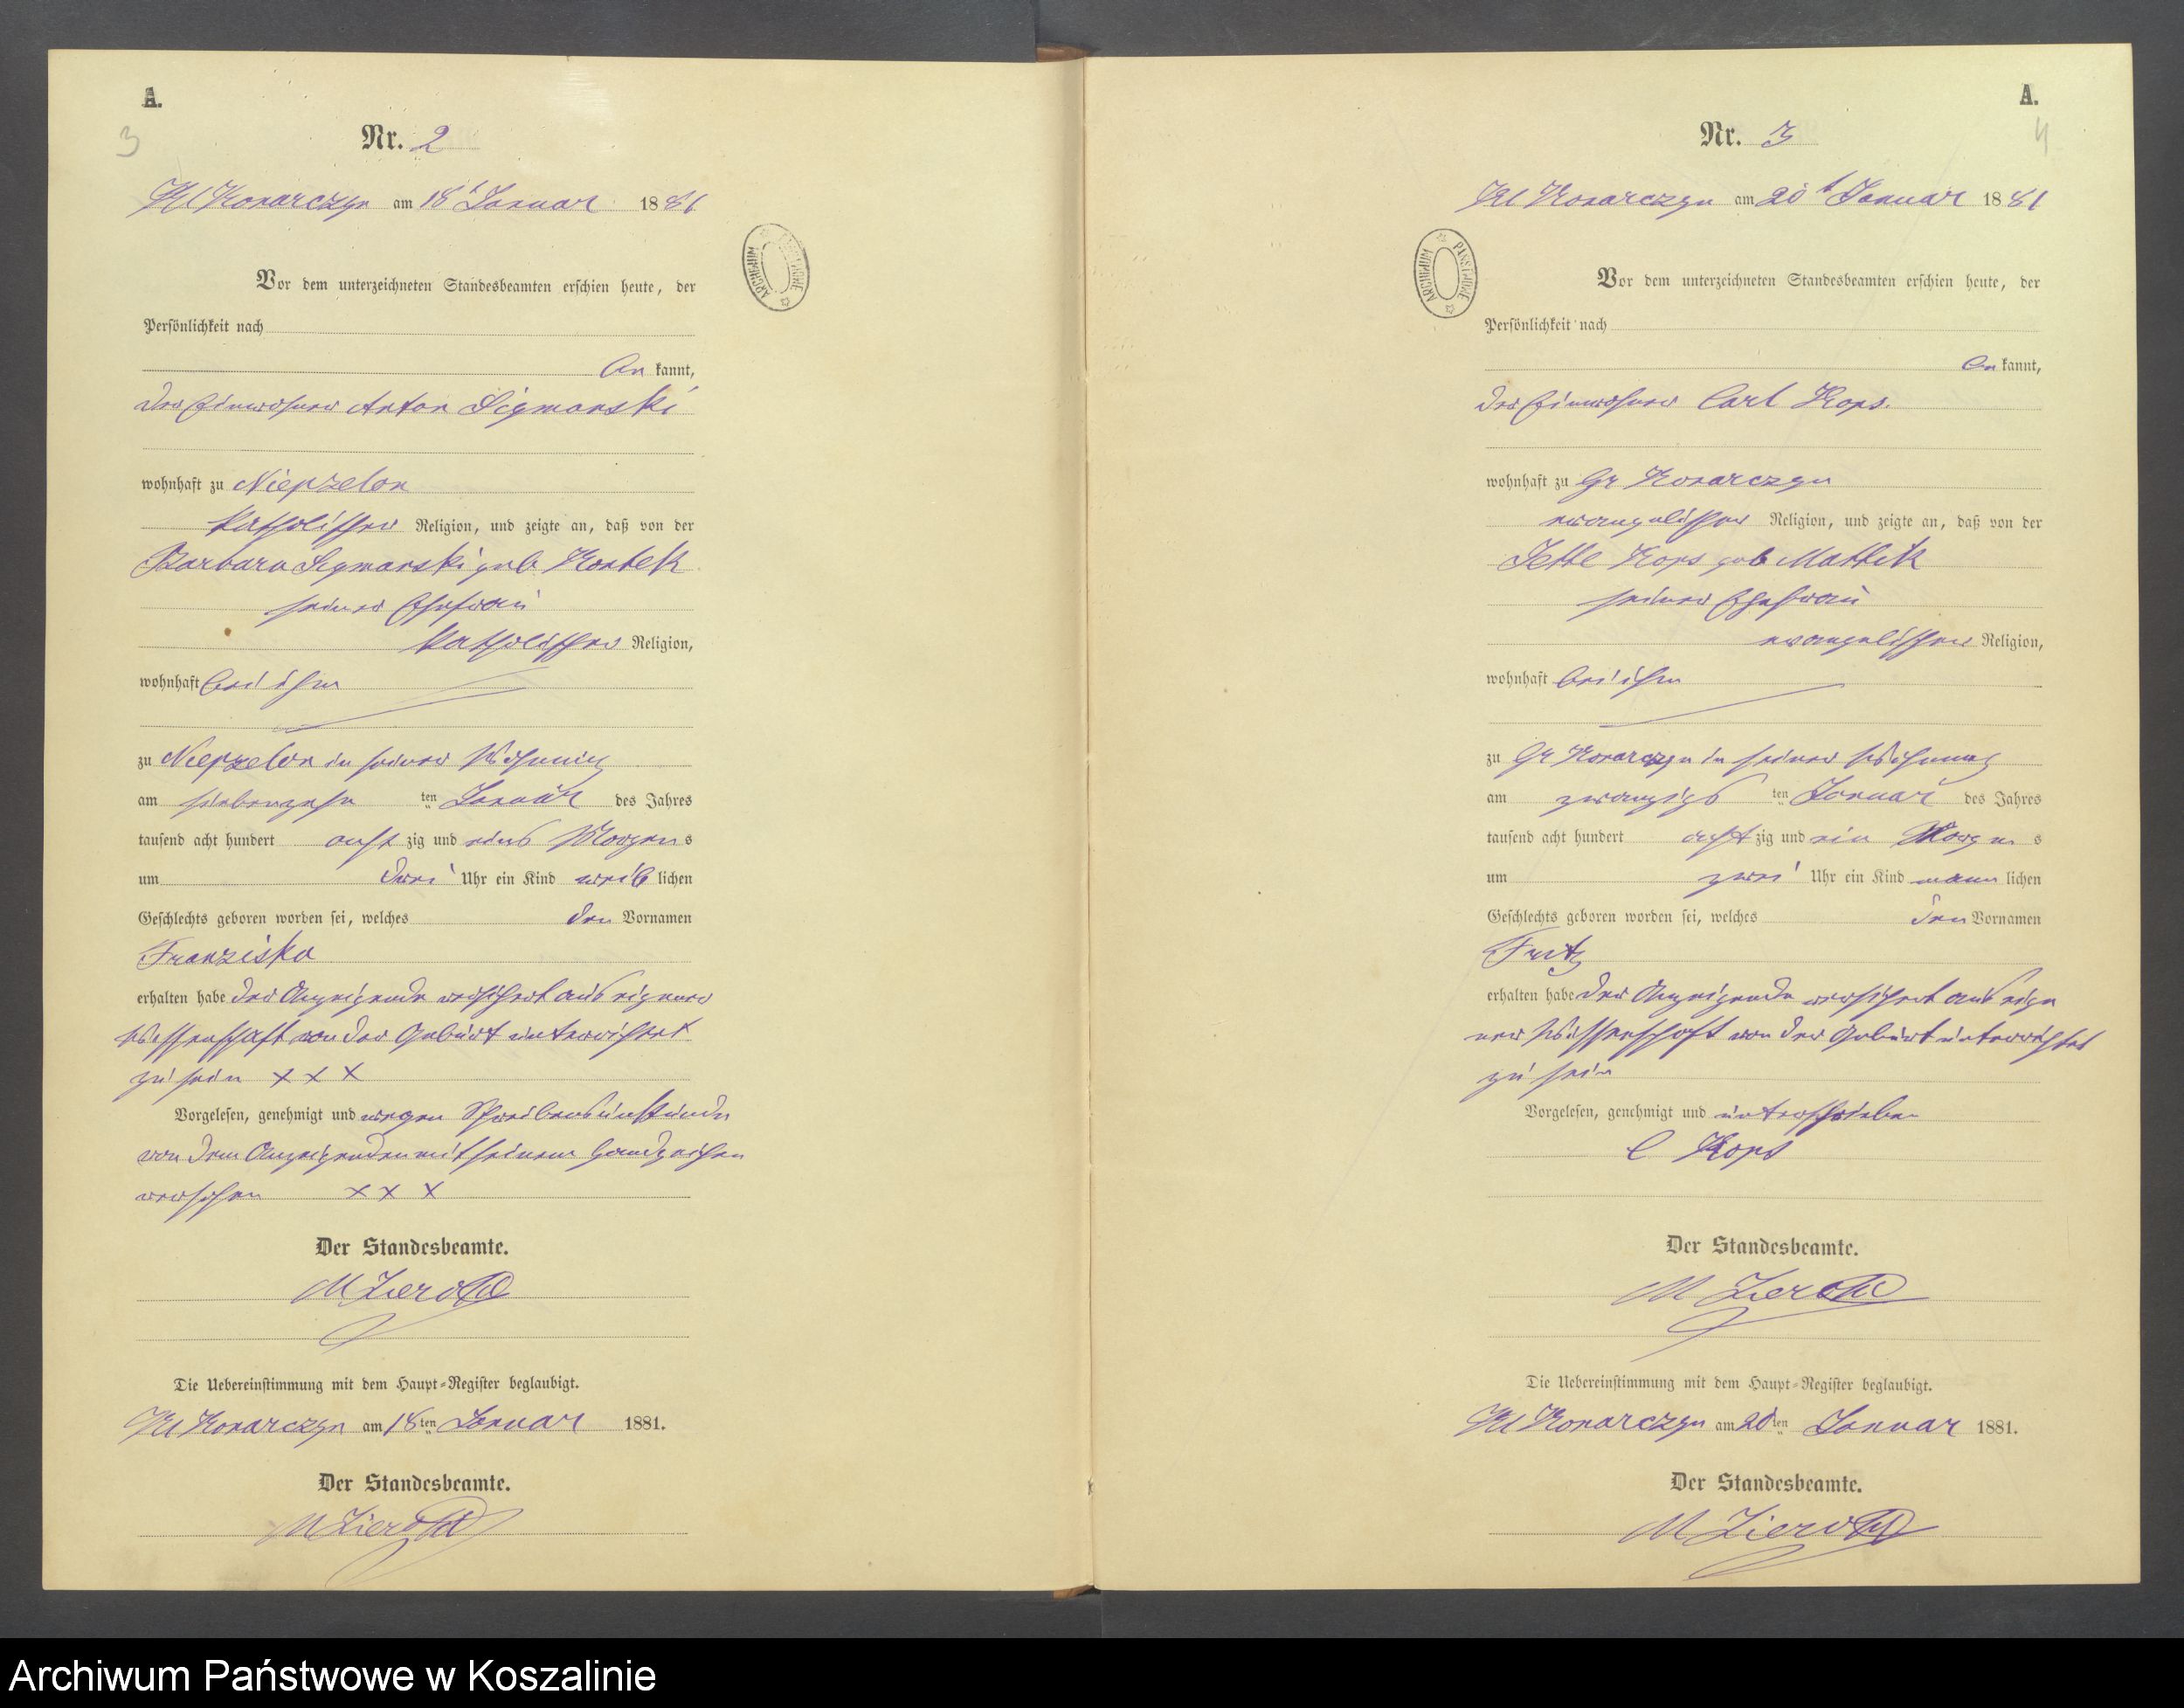 A.
3
Nr. 2
Kl Konarczyn am 18t Januar 1881
Vor dem unterzeichneten Standesbeamten erschien heute, der
Persönlichkeit nach
be kannt,
der Einwohner Anton Sigmanski
wohnhaft zu Niepzelon
katholischer Religion, und zeigte an, daß von der
Barbara Sigmanski geb Kontek
seiner Ehefrau
katholischer Religion,
wohnhaft bei ihm
zu Niepzelon in seiner Wohnung
am siebenzehn ten Januar des Jahres
tausend acht hundert acht zig und eins Morgen s
um drei Uhr ein Kind weib lichen
Geschlechts geboren worden sei, welches den Vornamen
Franziska
erhalten habe der Anzeigende versichert aus eigener
Wissenschaft von der Geburt unterrichtet
zu sein x x x
Vorgelesen, genehmigt und wegen Schreibensunkunde
von dem Anzeigenden mit seinem Handzeichen
versehen x x x
Der Standesbeamte.
M Zierold
Die Uebereinstimmung mit dem Haupt-Register beglaubigt.
Kl Konarczyn am 18ten Januar 1881.
Der Standesbeamte.
M Zierold
A.
4
Nr. 3
Kl Konarczyn am 20t Januar 1881
Vor dem unterzeichneten Standesbeamten erschien heute, der
Persönlichkeit nach
be kannt,
der Einwohner Carl Kops.
wohnhaft zu Gr Konarczyn
evangelischer Religion, und zeigte an, daß von der
Jette Kops geb Mattik
seiner Ehefrau
evangelischer Religion,
wohnhaft bei ihm
zu Gr Konarczyn in seiner Wohnung
am zwanzigs ten Januar des Jahres
tausend acht hundert acht zig und ein Morgen s
um zwei Uhr ein Kind männ lichen
Geschlechts geboren worden sei, welches den Vornamen
Fritz
erhalten habe der Anzeigende versichert aus eige
ner Wissenschaft von der Geburt unterrichtet
zu sein
Vorgelesen, genehmigt und unterschrieben
C Kops
Der Standesbeamte.
M Zierold
Die Uebereinstimmung mit dem Haupt-Register beglaubigt.
Kl Konarczyn am 20ten Januar 1881.
Der Standesbeamte.
M Zierold
ARCHIWUM PAŃSTWOWE
ARCHIWUM PAŃSTWOWE
Archiwum Państwowe w Koszalinie